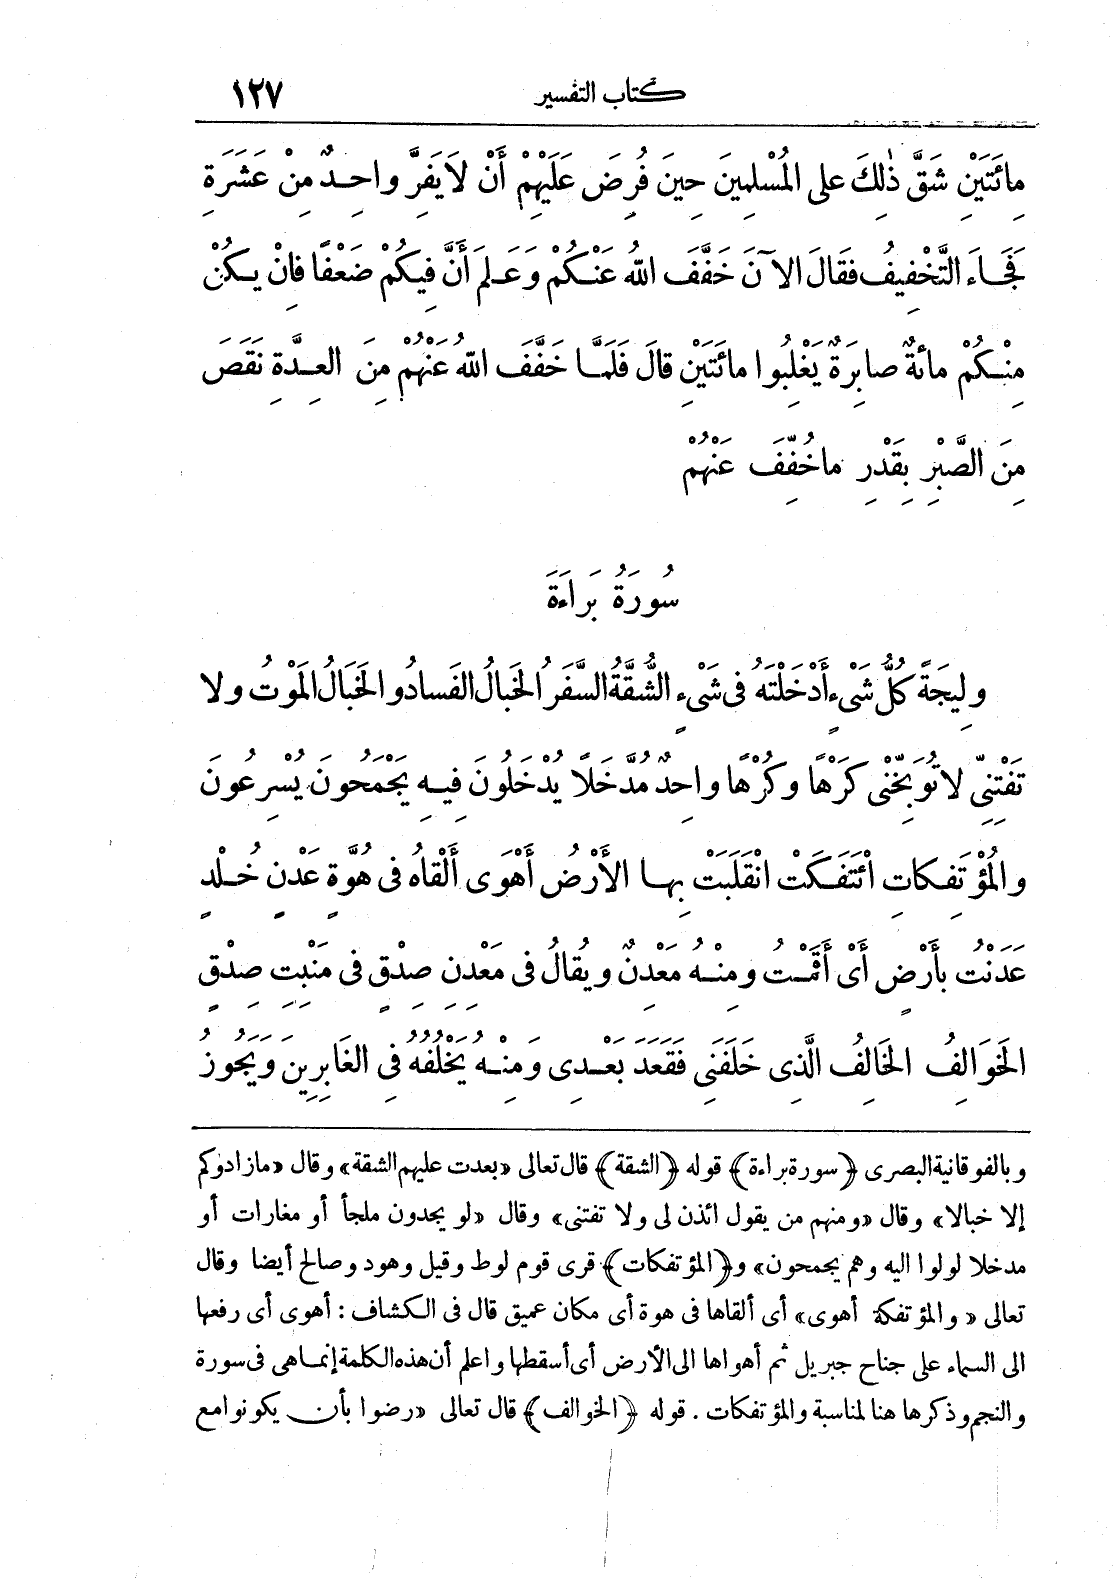 كتاب التفسير ١٢٧
مِائَتَيْنِ شَقَّ ذٰلِكَ على المُسْلِمِينَ حِينَ فُرِضَ عَلَيْهِمْ أَنْ لا يَفِرَّ واحِدٌ مِنْ عَشَرَةٍ
فَجاءَ التَّخْفِيفُ فقالَ الآنَ خَفَّفَ اللّهُ عَنْكُمْ وَعَلِمَ أَنَّ فِيكُمْ ضَعْفًا فإنْ يَكُنْ
مِنْكُمْ مائةٌ صابِرَةٌ يَغْلِبُوا مائَتَيْنِ قالَ فَلَمَّا خَفَّفَ اللّهُ عَنْهُمْ مِنَ العِدَّةِ نَقَصَ
مِنَ الصَّبْرِ بِقَدْرِ ما خُفِّفَ عَنْهُمْ
سُورَةُ بَرَاءَةَ
وَلِيجَةً كُلُّ شَيْءٍ أَدْخَلْتَهُ فى شَيْءٍ الشُّقَّةُ السَّفَرُ الخَبالُ الفَسادُ والخَبَالُ المَوْتُ ولا
تَفْتِنِّى لا تُوَبِّخْنِى كَرْهًا وكُرْهًا واحِدٌ مُدَّخَلًا يُدْخَلُونَ فِيهِ يَجْمَحُونَ يُسْرِعُونَ
والمُؤْتَفِكاتِ ائْتَفَكَتْ انْقَلَبَتْ بِها الأَرْضُ أَهْوَى أَلْقاهُ فى هُوَّةٍ عَدْنٍ خُلْدٍ
عَدَنْتُ بأَرْضٍ أَىْ أَقَمْتُ ومِنْهُ مَعْدِنٌ ويُقالُ فى مَعْدِنِ صِدْقٍ فى مَنْبِتِ صِدْقٍ
الخَوَالِفُ الخَالِفُ الَّذِى خَلَفَنِى فَقَعَدَ بَعْدِى وَمِنْهُ يَخْلُفُهُ فى الغَابِرِينَ ويَجُوزُ
وبالفوقانية البصرى ﴿سورة براءة﴾ قوله ﴿الشقة﴾ قال تعالى «بعدت عليهم الشقة» وقال «مازادوكم
إلا خبالا» وقال «ومنهم من يقول ائذن لى ولا تفتنى» وقال «لو يجدون ملجأ أو مغارات أو
مدخلا لولوا اليه وهم يجمحون» و﴿المؤتفكات﴾ قرى قوم لوط وقيل وهود وصالح أيضا وقال
تعالى «والمؤتفكة أهوى» أى ألقاها فى هوة أى مكان عميق قال فى الكشاف : أهوى أى رفعها
الى السماء على جناح جبريل ثم أهواها الى الأرض أى أسقطها واعلم أن هذه الكلمة إنما هى فى سورة
والنجم وذكرها هنا لمناسبة والمؤتفكات . قوله ﴿الخوالف﴾ قال تعالى «رضوا بأن يكونوا مع